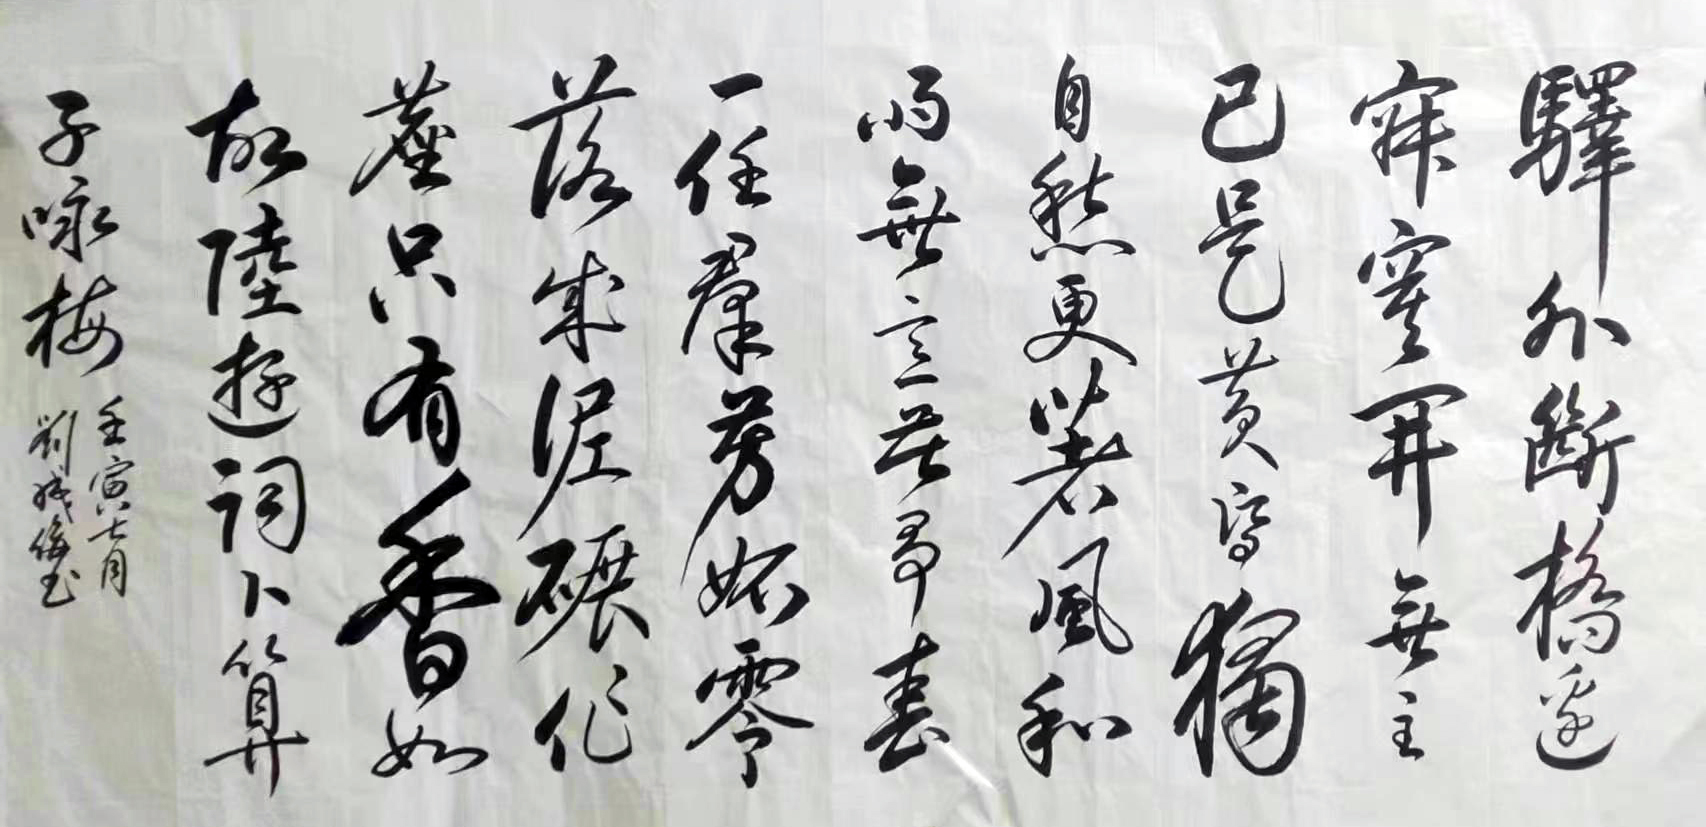 驛外斷橋邊
寂寞開無主
已是黃昏獨
自愁更著風和
雨無意苦爭春
一任羣芳妬零
落成泥碾作
塵只有香如
故陸遊詞卜算
子咏梅
壬寅七月
劉